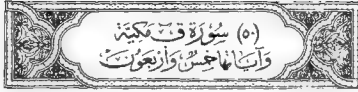 (٥٠) سُورَة ق مَكيَّة
وَآيَاتُهَا خَمْسٌ وَأَرْبَعُونَ